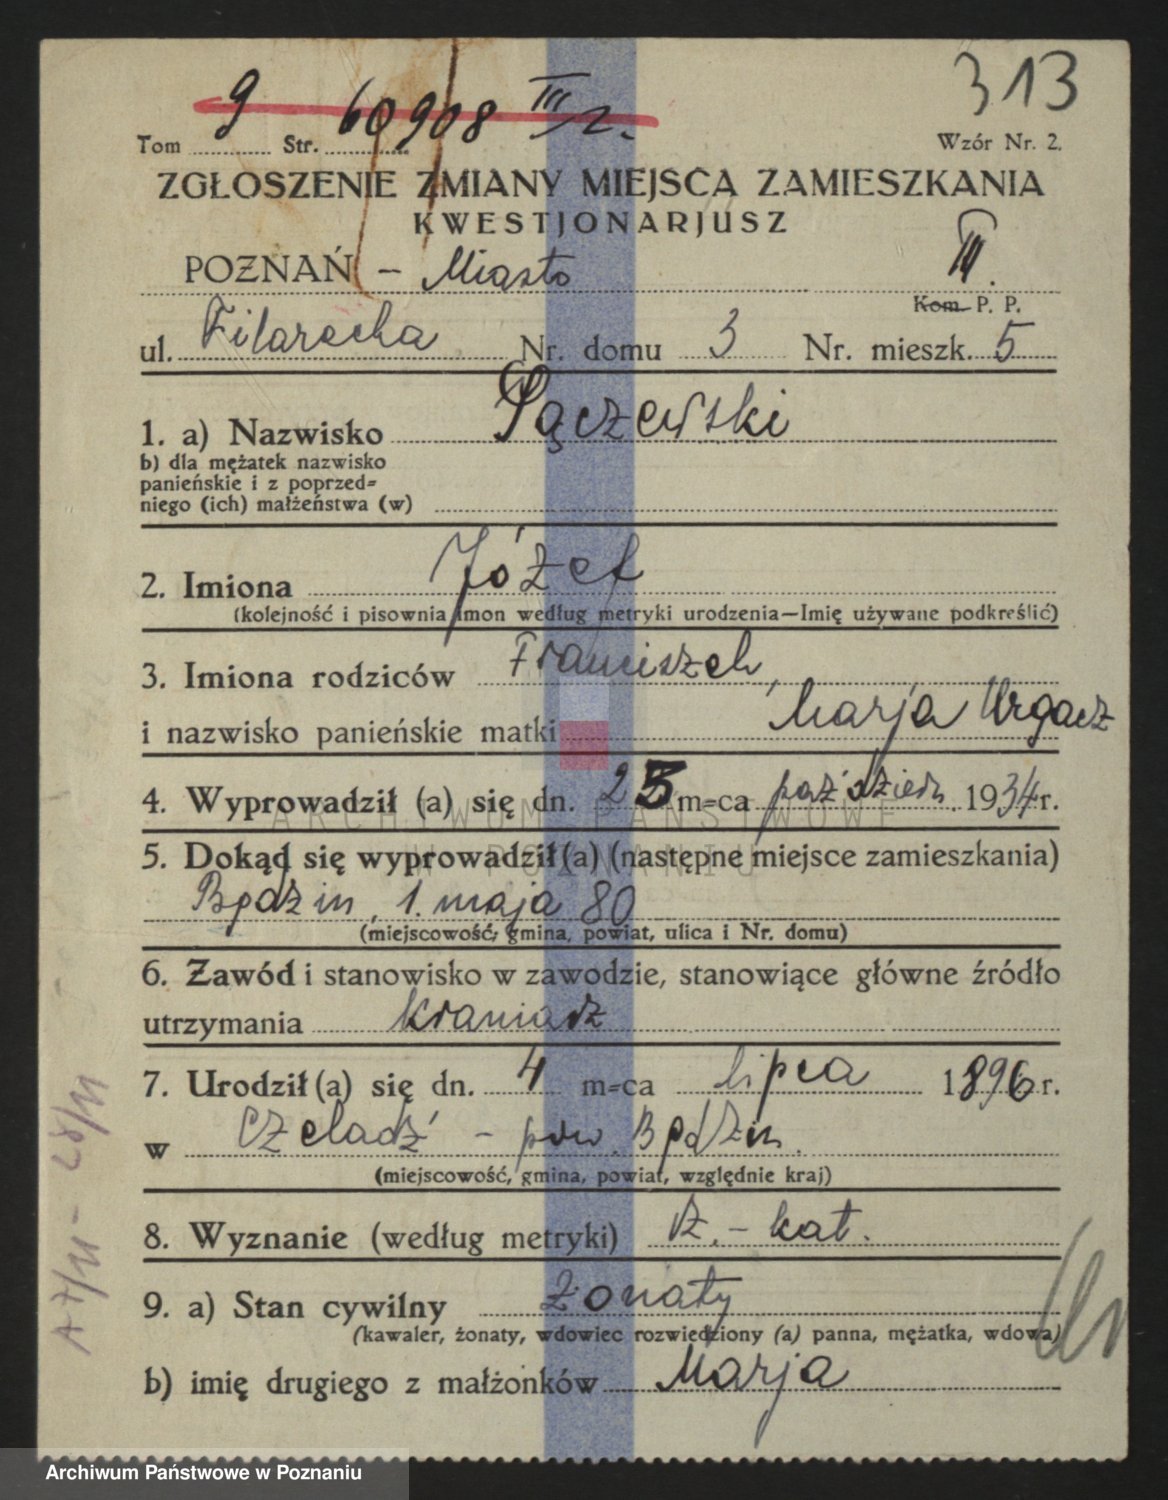 313
Tom 9 Str. 60908 III r.
Wzór Nr. 2.
ZGŁOSZENIE ZMIANY MIEJSCA ZAMIESZKANIA
KWESTJONARJUSZ
POZNAŃ – Miasto III.
Kom. P. P.
ul. Filarecka Nr. domu 3 Nr. mieszk. 5
1. a) Nazwisko Pączewski
b) dla mężatek nazwisko
panieńskie i z poprzed=
niego (ich) małżeństwa (w)
2. Imiona Józef
(kolejność i pisownia imon według metryki urodzenia—Imię używane podkreślić)
3. Imiona rodziców Franciszek,
i nazwisko panieńskie matki Marja Urgacz
4. Wyprowadził (a) się dn. 25 m=ca paździer. 1934 r.
ARCHIWUM PAŃSTWOWE
W POZNANIU
5. Dokąd się wyprowadził(a) (następne miejsce zamieszkania)
Będzin, 1. maja 80
(miejscowość, gmina, powiat, ulica i Nr. domu)
6. Zawód i stanowisko w zawodzie, stanowiące główne źródło
utrzymania kramarz
7. Urodził(a) się dn. 4 m=ca lipca 1896 r.
w Czeladź – pow. Będzin.
(miejscowość, gmina, powiat, względnie kraj)
8. Wyznanie (według metryki) rz. – kat.
9. a) Stan cywilny żonaty
(kawaler, żonaty, wdowiec rozwiedziony (a) panna, mężatka, wdowa)
b) imię drugiego z małżonków Marja
Archiwum Państwowe w Poznaniu